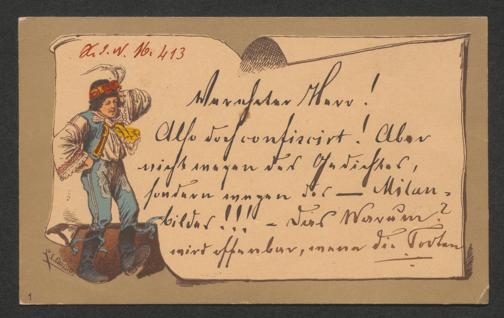 H. I. N. 16.413
Verehrter Herr!
Also doch confiscirt! Aber
nicht wegen des Gedichtes,
sondern wegen des — Milan-
bildes!!! – Das Warum?
wird offenbar, wenn die Todten
1